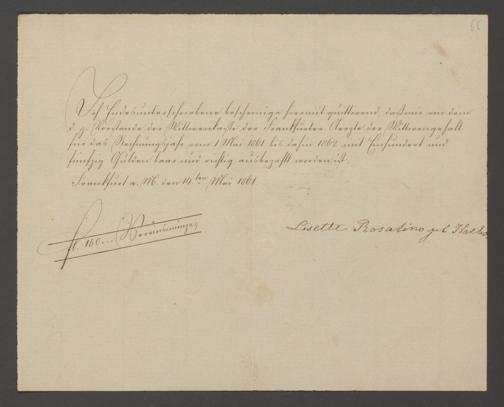 66
Ich Endesunterschriebene bescheinige hiermit quittirend, daß mir von dem
d. z. Vorstande der Wittwenkasse der Frankfurter Aerzte der Wittwengehalt
für das Rechnungsjahr vom 1 Mai 1861 bis dahin 1862 mit Einhundert und
fünfzig Gulden baar und richtig ausbezahlt worden ist.
Frankfurt a. M. den 14ten Mai 1861
fl. 150.
Lisette Rosalino geb